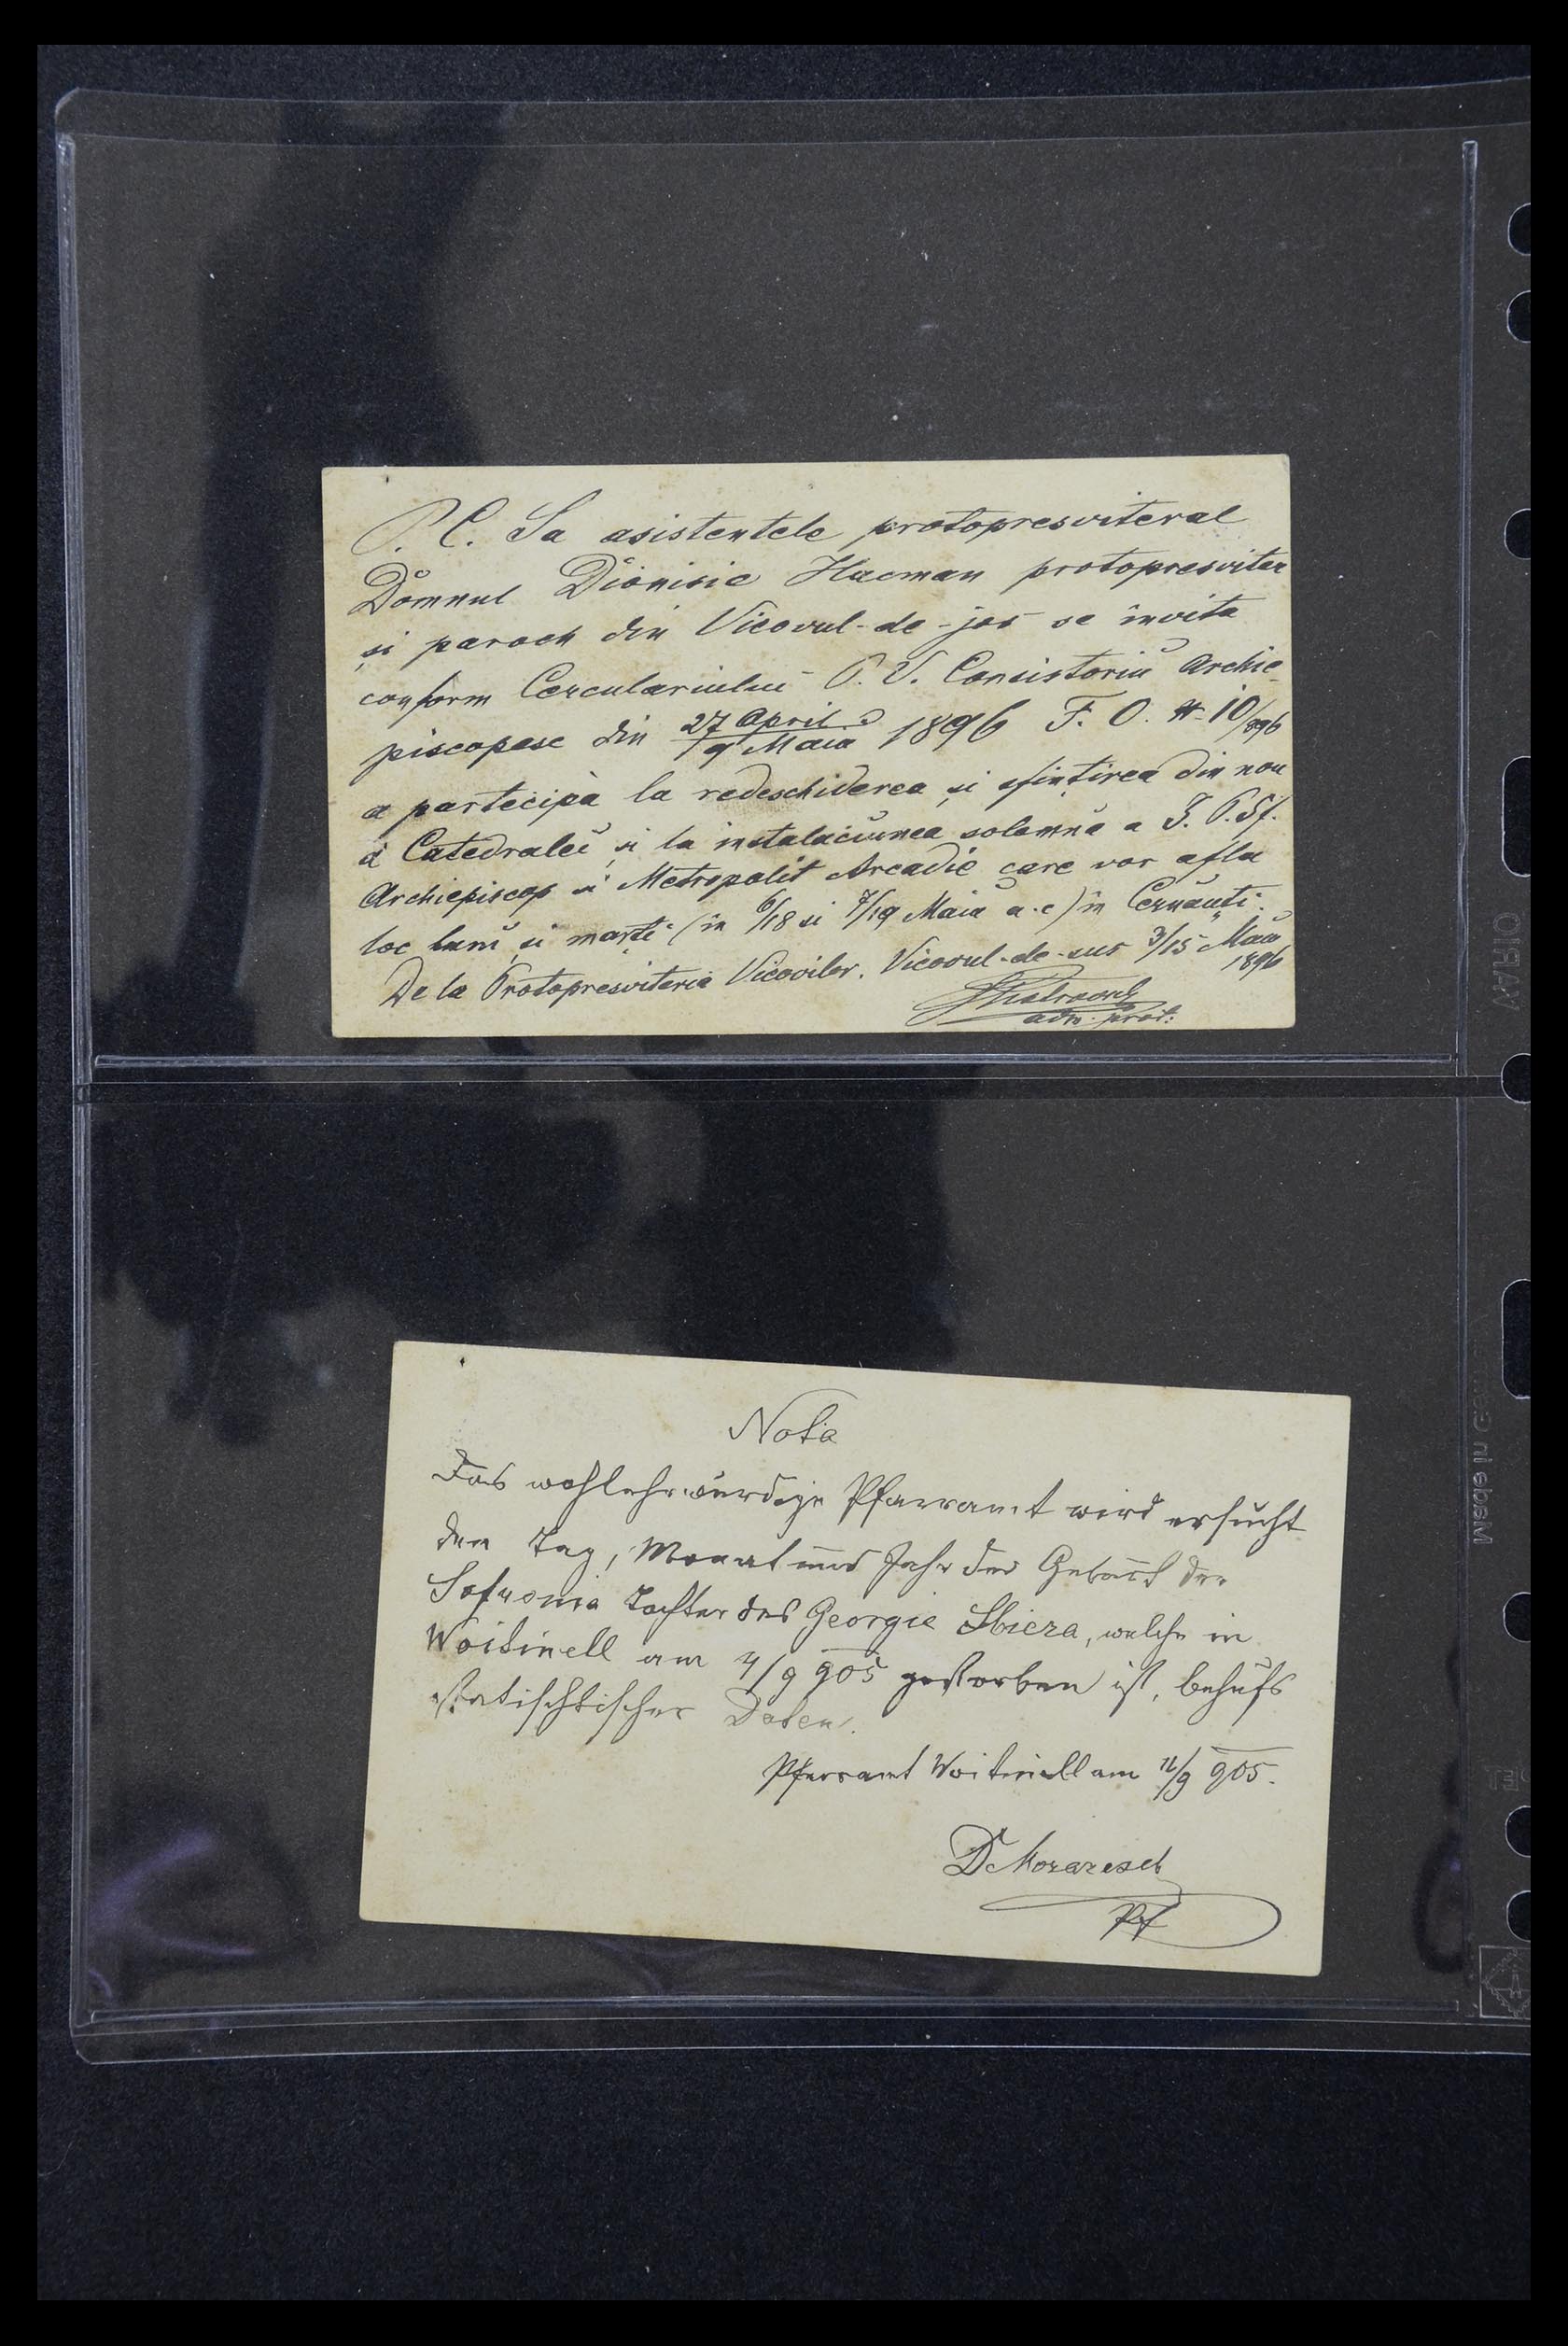 P. C. Sa asistentele protopresviteral
Domnul Dionisie Hacman protopresviter
și paroch din Vicovul-de-jos se invita
conform Cercularului P. V. Consistoriu Archie-
piscopesc din 27 April/9 Maiu 1896 F. O. N 10/896
a participà la redeschiderea și sfințirea din nou
a Catedralei și la instalaciunea solemnă a I. P. Sf.
Archiepiscop și Metropolit Arcadie care vor afla
loc luni și marți (in 6/18 si 7/19 Maiu a.c) in Cernăuți.
De la Protopresviteria Vicovilor. Vicovul-de-sus 3/15 Maiu
1896
adm. prot:
Nota
Das wohlehrwürdige Pfarramt wird ersucht
den Tag, Monat und Jahr der Geburt der
Sofronia Tochter des Georgie Sbiera, welche in
Woitinell am 7/9 905 gestorben ist, behufs
statischtischer Daten.
Pfarramt Woitinell am 11/9 905.
Pf
WARIO
Made in G